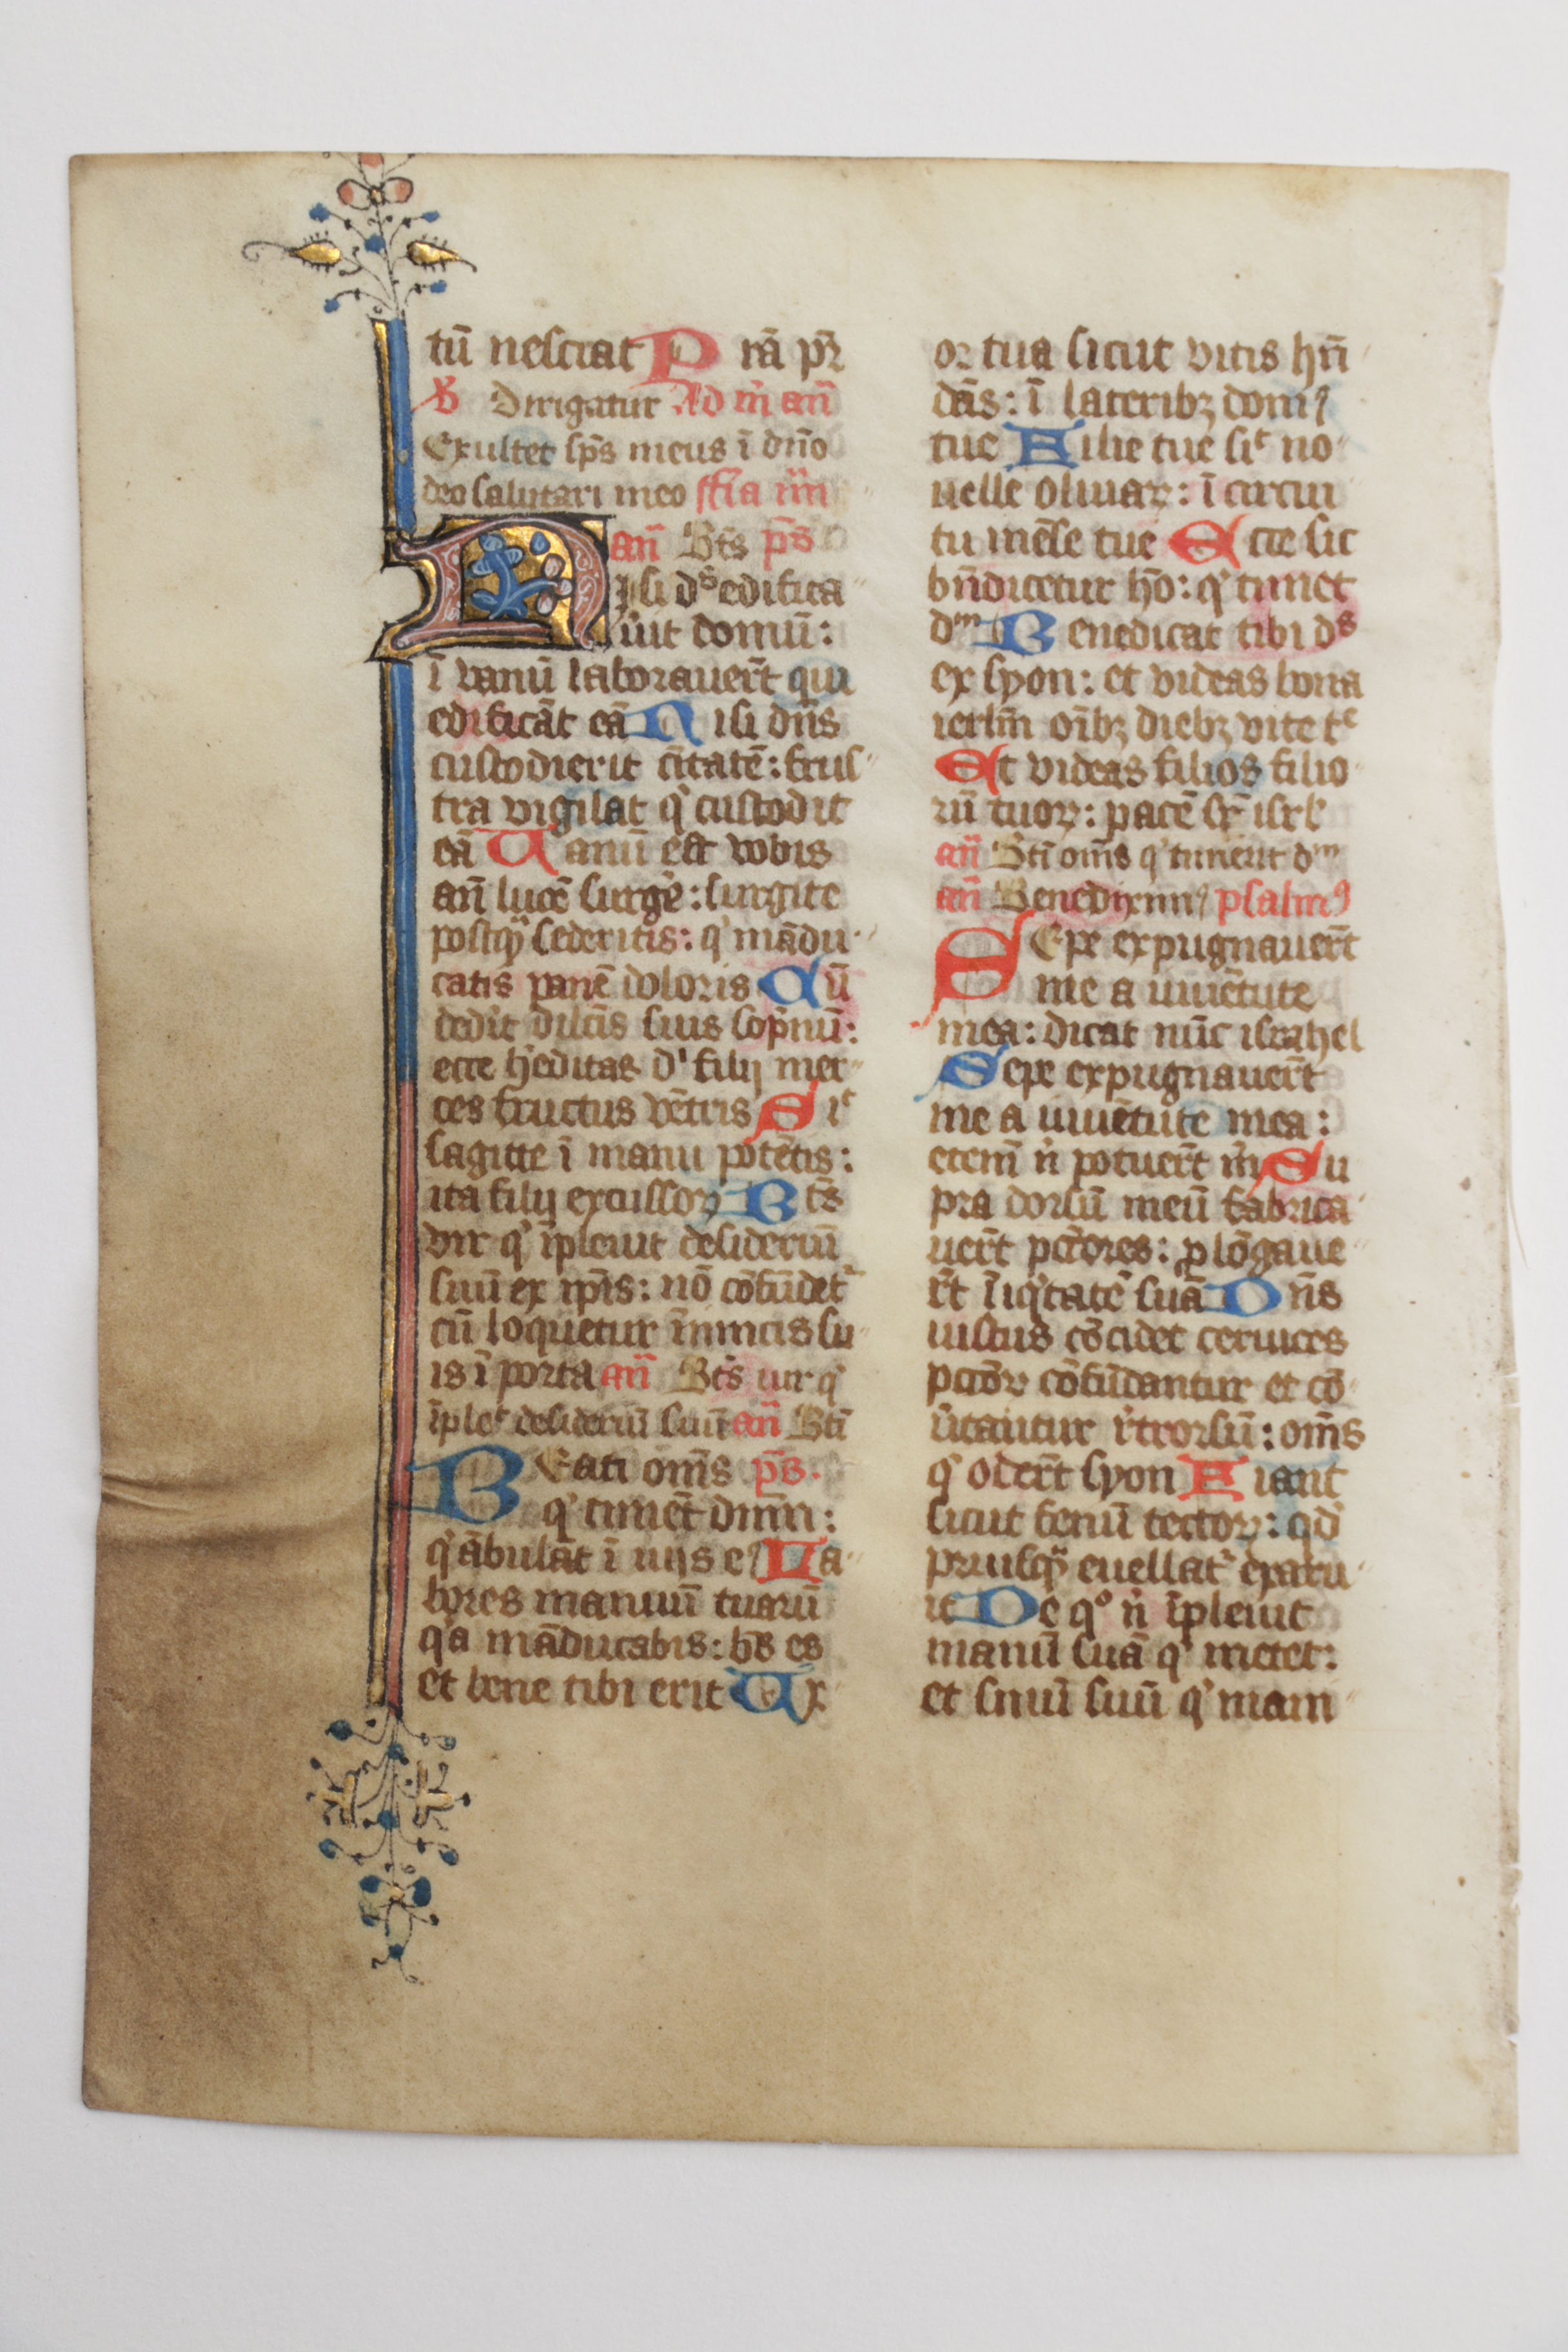 tū nesciat P rā pr̄
℣ Dirigatur Ad m̄ an̄
Exultet sp̄s meus ī dn̄o
deo salutari meo f̄ia iiii
an̄ Bt̄s p̄s
Nisi ds edifica
ūit domū:
ī vanū laborauer̄t qui
edificāt eā Nisi dn̄s
custodierit ciutatē: frus
tra vigilat qⁱ custodit
eā Uanū est vobis
an̄ lucē surgē: surgite
postqͣ sederitis: qⁱ mādu
catis panē doloris Cū
dederit dilc̄is suis sop̄nū:
ecce hēditas dⁱ filij mer
ces fructus vētris Siᶜ
sagitte ī manu potētis:
ita filij excussoꝝ Bt̄s
vir qⁱ īpleuit desideriū
suū ex ip̄is: nō cōfūdet᷑
cū loquetur inimicis su
is ī porta an̄ Bt̄s uir qⁱ
īpleᵗ desideriū suū an̄ Bt̄i
BEati om̄s p̄s.
qⁱ timēt dn̄m:
qⁱ ābulāt ī uijs eꝰ La
bores manuū tuarū
qͥa māducabis: bt̄s es
et bene tibi erit Ux
or tua sicut vitis hn̄
dās: ī lateribꝫ domꝰ
tue Filie tue siᶜ no
uelle oliuaꝝ: ī circui
tu mēse tue Ecce sic
bn̄dicetur hō: qⁱ timet
dᵐ Benedicat tibi ds
ex syon: et videas bona
ierlm̄ oībꝫ diebꝫ vite tᵉ
Et videas filios filio
rū tuoꝝ: pacē sr̄ isrl
an̄ Bt̄i om̄s qⁱ timent dᵐ
an̄ Benediximꝰ psalmꝰ
SEpe expugnauer̄t
me a iuuētute
mea: dicat nūc israhel
Sepe expugnauer̄t
me a iuuētute mea:
etenī n̄ potuer̄t m̄ Su
pra dorsū meū fabrica
uer̄t pctōres: ꝓlōgaue
r̄t īiqͥtatē suā Dn̄s
iustus cōcidet ceruices
pctōꝝ cōfūdantur et cō
ūtantur r̄trorsū: om̄s
qⁱ oder̄t syon Fiant
sicut fenū tectoꝝ: qd̄
priusqͣ euellat᷑ exaru
it De qº n̄ īpleuit
manū suā qⁱ metet:
et sinū suū qⁱ mani